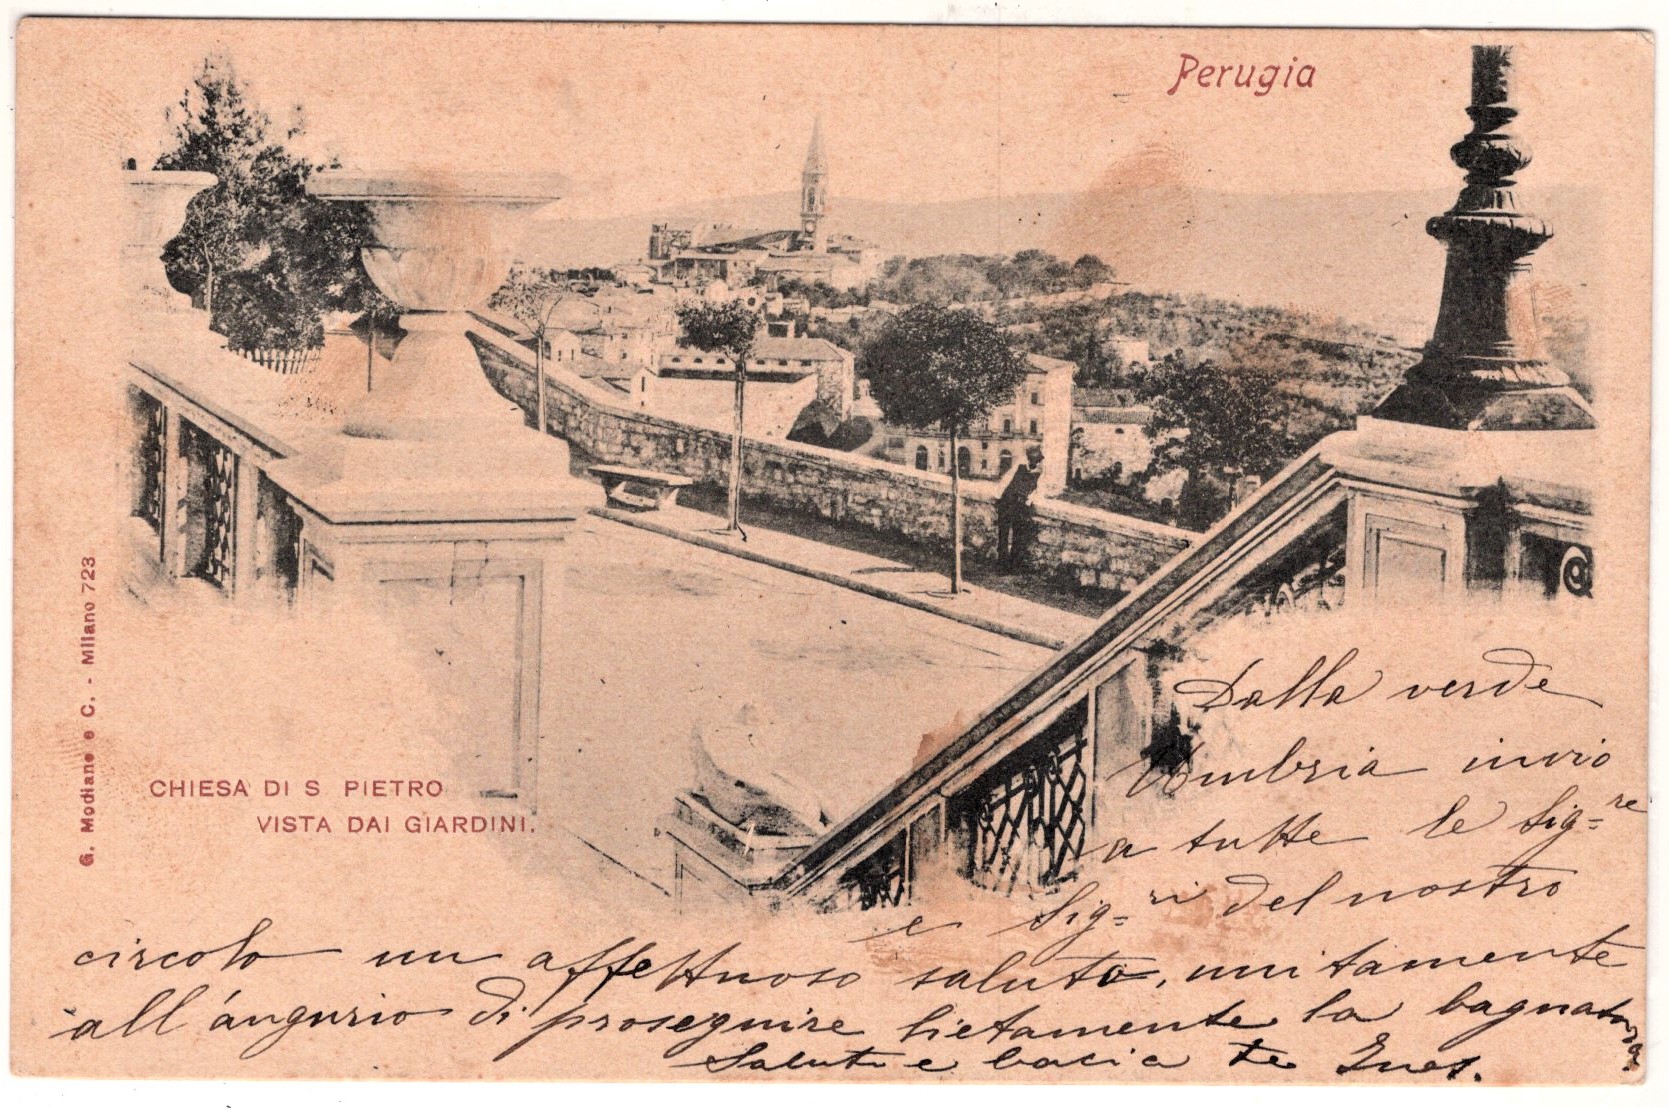 Perugia
G. Modiano e C. - Milano 723
CHIESA DI S PIETRO
VISTA DAI GIARDINI.
Dalla verde
Umbria invio
a tutte le Sig=re
e Sig=ri del nostro
circolo un affettuoso saluto, unitamente
all'augurio di proseguire lietamente la bagnatura.
Saluti e baci a te Ines.